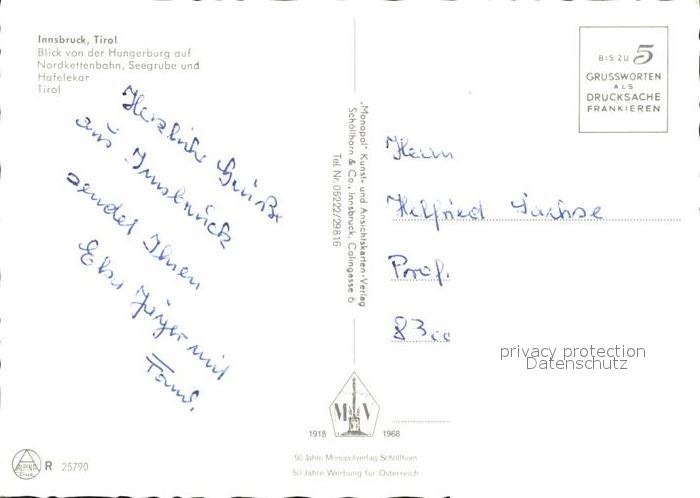 Innsbruck, Tirol
Blick von der Hungerburg auf
Nordkettenbahn, Seegrube und
Hafelekar
Tirol
Herzliche Grüße
aus Innsbruck
sendet Ihnen
Jäger mit
Fam.
"Monopol" Kunst- und Ansichtskarten-Verlag
Schöllhorn & Co., Innsbruck, Colingasse 6
Tel. Nr. 05222/29816
BIS ZU 5
GRUSSWORTEN
ALS
DRUCKSACHE
FRANKIEREN
Herrn
Helfried Sachse
Prof.
83
privacy protection
Datenschutz
M V
1918 1968
50 Jahre Monopolverlag Schöllhorn
50 Jahre Werbung für Österreich
ALPINA
R 25790